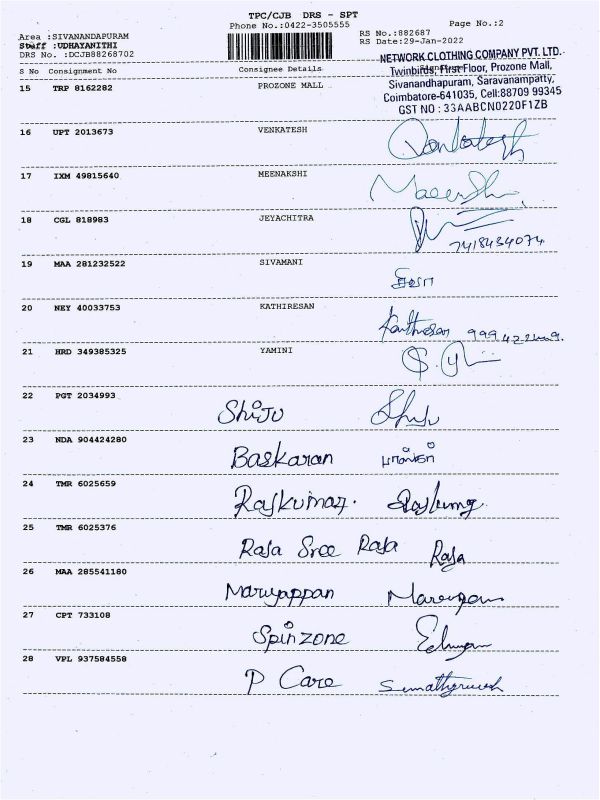 TPC/CJB DRS - SPT
Phone No.:0422-3505555 Page No.:2
Area :SIVANANDAPURAM RS No.:882687
Staff :UDHAYANITHI RS Date:29-Jan-2022
DRS No. :DCJB88268702
NETWORK CLOTHING COMPANY PVT. LTD.
S No Consignment No Consignee Details
Twinbirds, First Floor, Prozone Mall,
15 TRP 8162282 PROZONE MALL
Sivanandhapuram, Saravanampatty,
Coimbatore-641035, Cell:88709 99345
GST NO : 33AABCN0220F1ZB
16 UPT 2013673 VENKATESH
Venkatesh
17 IXM 49815640 MEENAKSHI
18 CGL 818983 JEYACHITRA
7418434074
19 MAA 281232522 SIVAMANI
20 NEY 40033753 KATHIRESAN
Kathiresan
21 HRD 349385325 YAMINI
22 PGT 2034993 Shiju Shiju
23 NDA 904424280 Baskaran
24 TMR 6025659 Rajkumar.
25 TMR 6025376 Raja Sree Raja Raja
26 MAA 285541180 Mariyappan
27 CPT 733108 Spinzone
28 VPL 937584558 P Care